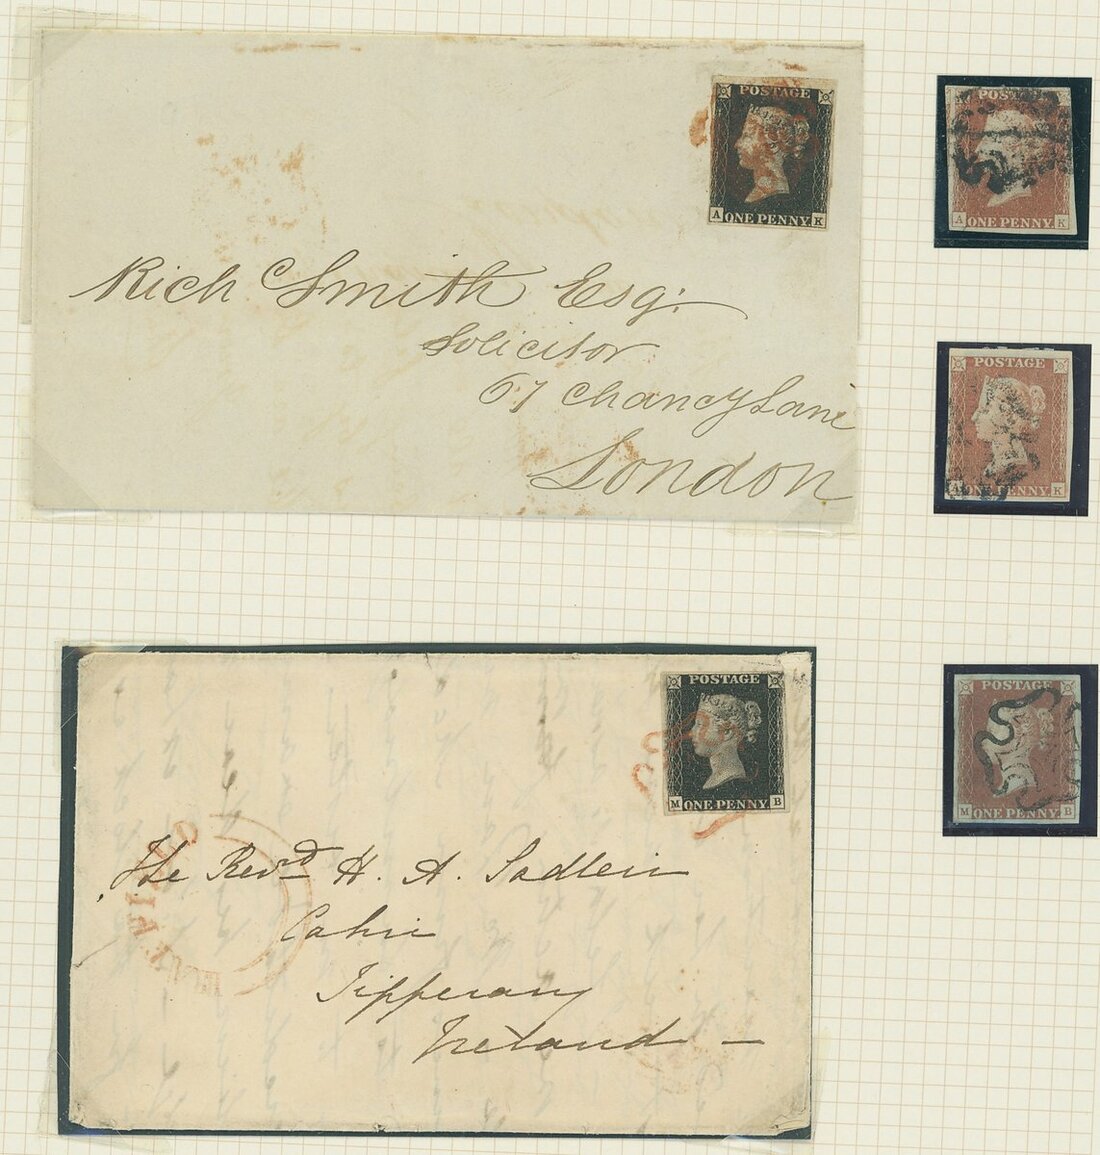 POSTAGE
A ONE PENNY K
Rich Smith Esq:
Solicitor
67 Chancy Lane
London
POSTAGE
A ONE PENNY K
POSTAGE
ONE PENNY K
POSTAGE
M ONE PENNY B
The Revd H. A. Sadleir
Cahir
Tipperary
Ireland
POSTAGE
M ONE PENNY B